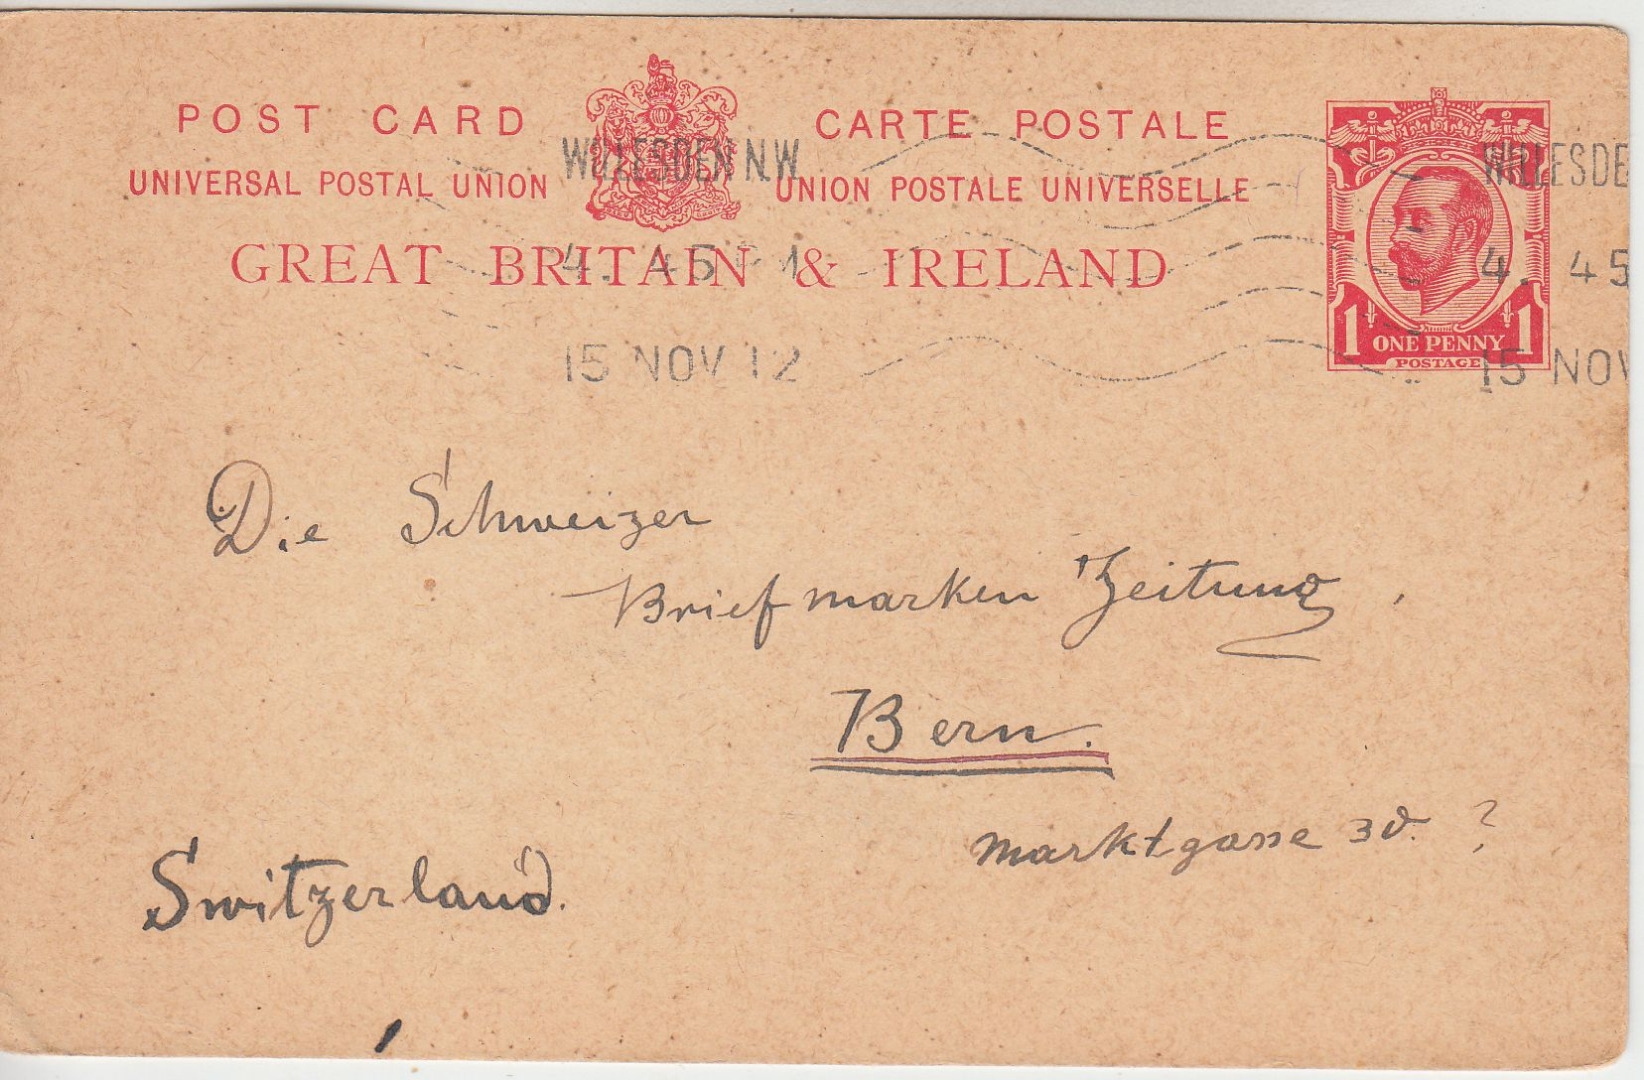 POST CARD
CARTE POSTALE
UNIVERSAL POSTAL UNION
UNION POSTALE UNIVERSELLE
GREAT BRITAIN & IRELAND
WILLESDEN N.W.
4. 45
15 NOV 12
WILLESDE
4. 45
15 NOV
1 ONE PENNY 1
POSTAGE
Die Schweizer
Briefmarken Zeitung,
Bern.
Marktgasse ?
Switzerland.